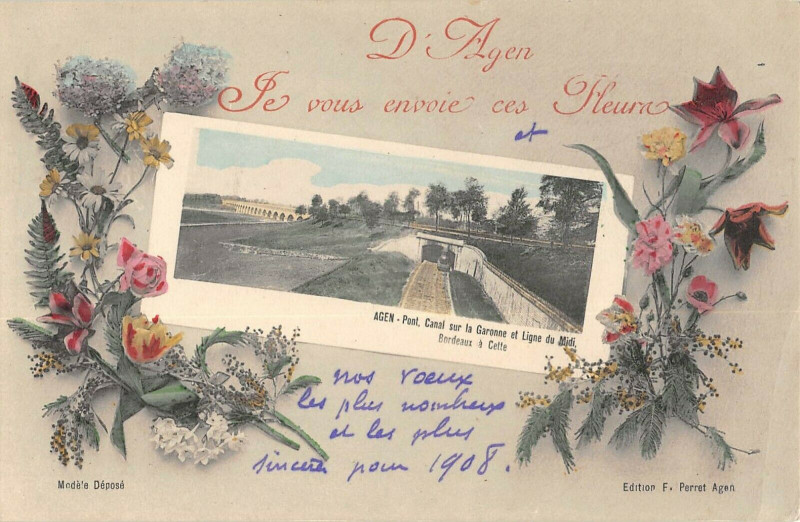 D'Agen
Je vous envoie ces Fleurs
et
AGEN - Pont, Canal sur la Garonne et Ligne du Midi,
Bordeaux à Cette
nos voeux
les plus nombreux
et les plus
sincères pour 1908.
Modèle Déposé
Edition F. Perret Agen